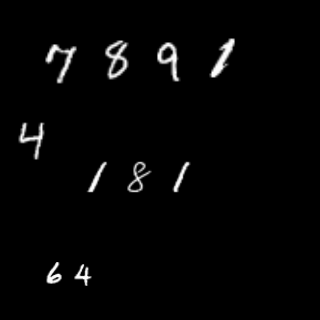 7891
4
181
64